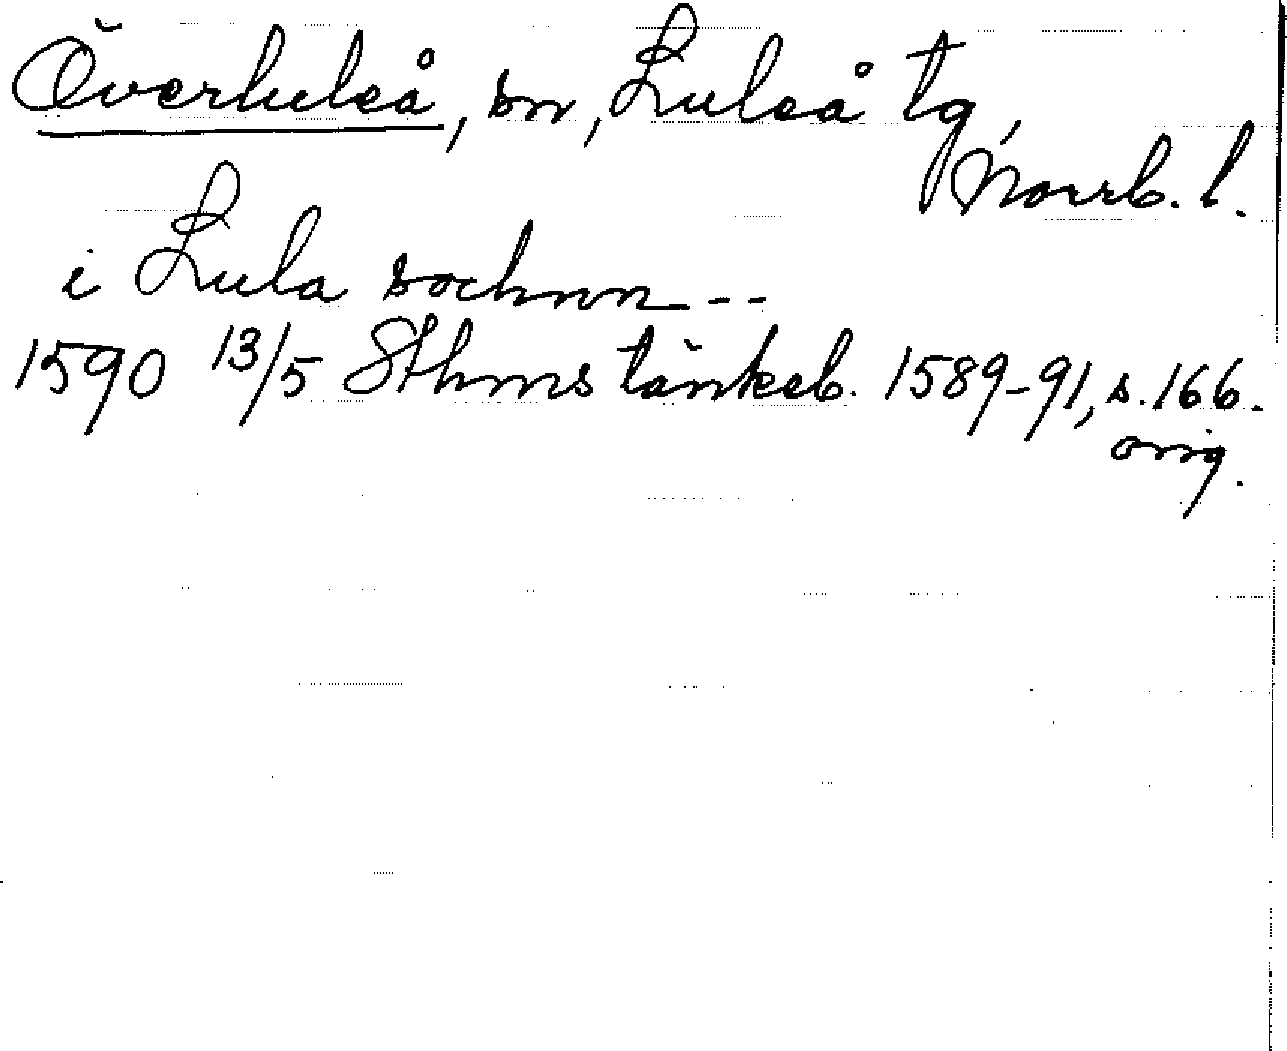 Överluleå, sn, Luleå tg,
Norrb. l.
i Lula sochnn - -
1590 13/5 Sthms tänkeb. 1589-91, s. 166.
orig.